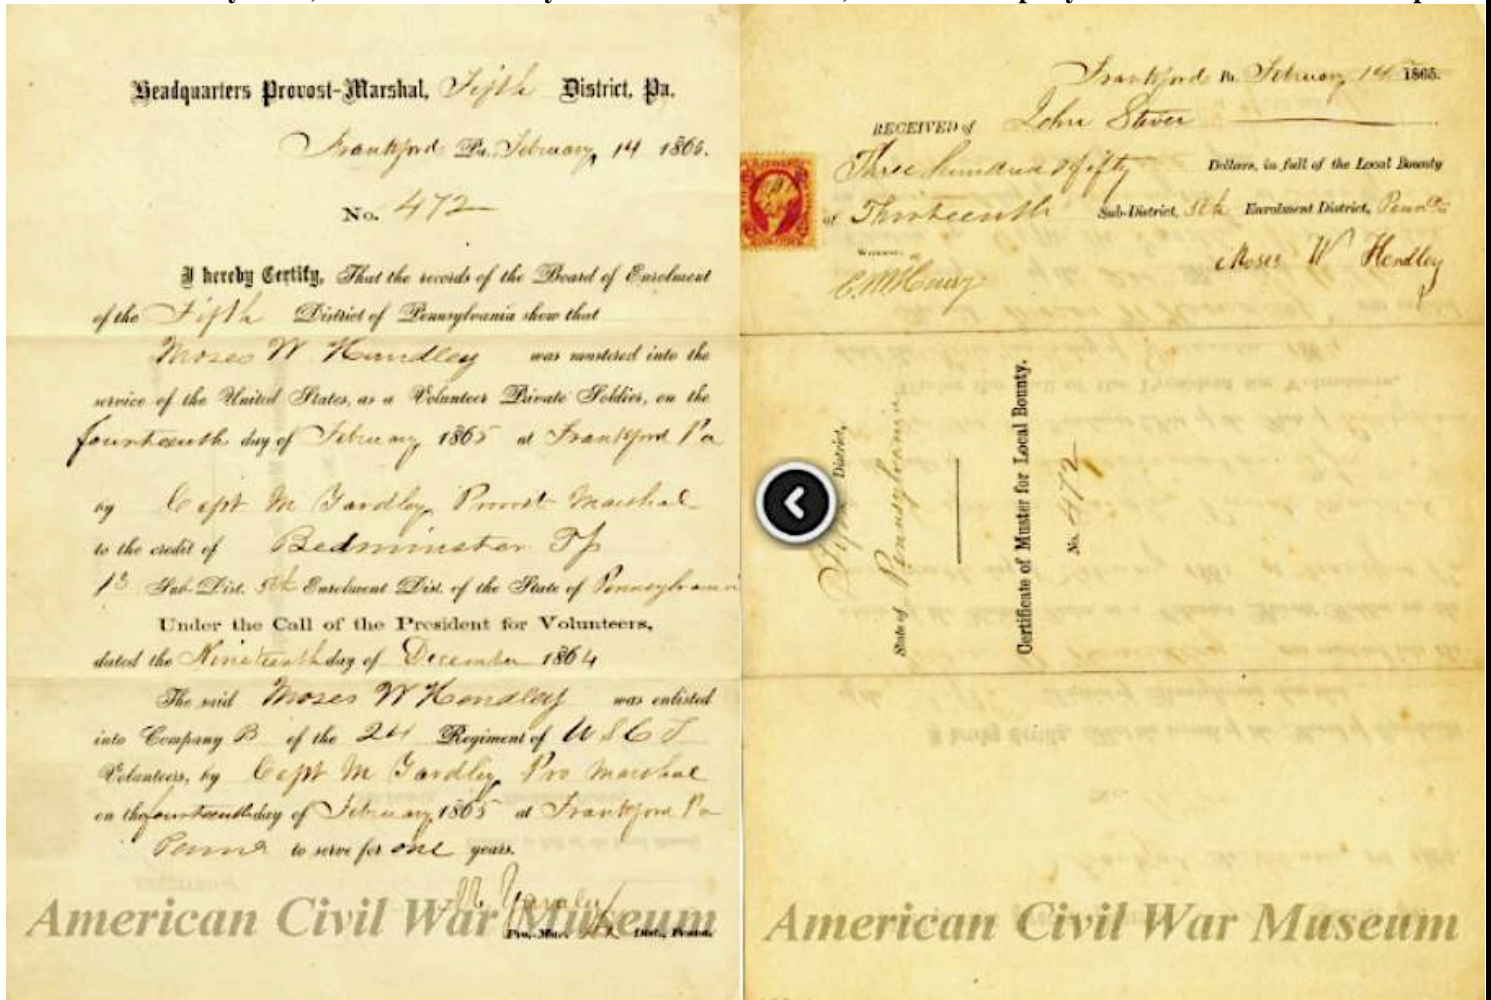 Headquarters Provost-Marshal, Fifth District, Pa.
Frankford Pa. February, 14 1865.
No. 472
I hereby Certify, That the records of the Board of Enrolment
of the Fifth District of Pennsylvania show that
Moses W Hendley was mustered into the
service of the United States, as a Volunteer Private Soldier, on the
fourteenth day of February 1865 at Frankford Pa
by Capt M Yardley Provost Marshal
to the credit of Bedminster Tp
13 Sub-Dist. 5th Enrolment Dist. of the State of Pennsylvania
Under the Call of the President for Volunteers,
dated the Nineteenth day of December 1864
The said Moses W Hendley was enlisted
into Company B of the 24 Regiment of U S C T
Volunteers, by Capt M Yardley Pro Marshal
on the fourteenth day of February 1865 at Frankford Pa
Penna to serve for one years.
M Yardley
Pro.-Mar. 5th Dist., Penna.
American Civil War Museum
Frankford Pa. February 14 1865.
RECEIVED of John Stever
Three hundred & fifty Dollars, in full of the Local Bounty
of Thirteenth Sub-District, 5th Enrolment District, Penn
Witness:
Moses W Hendley
Fifth District,
State of Pennsylvania
Certificate of Muster for Local Bounty.
No. 472
American Civil War Museum